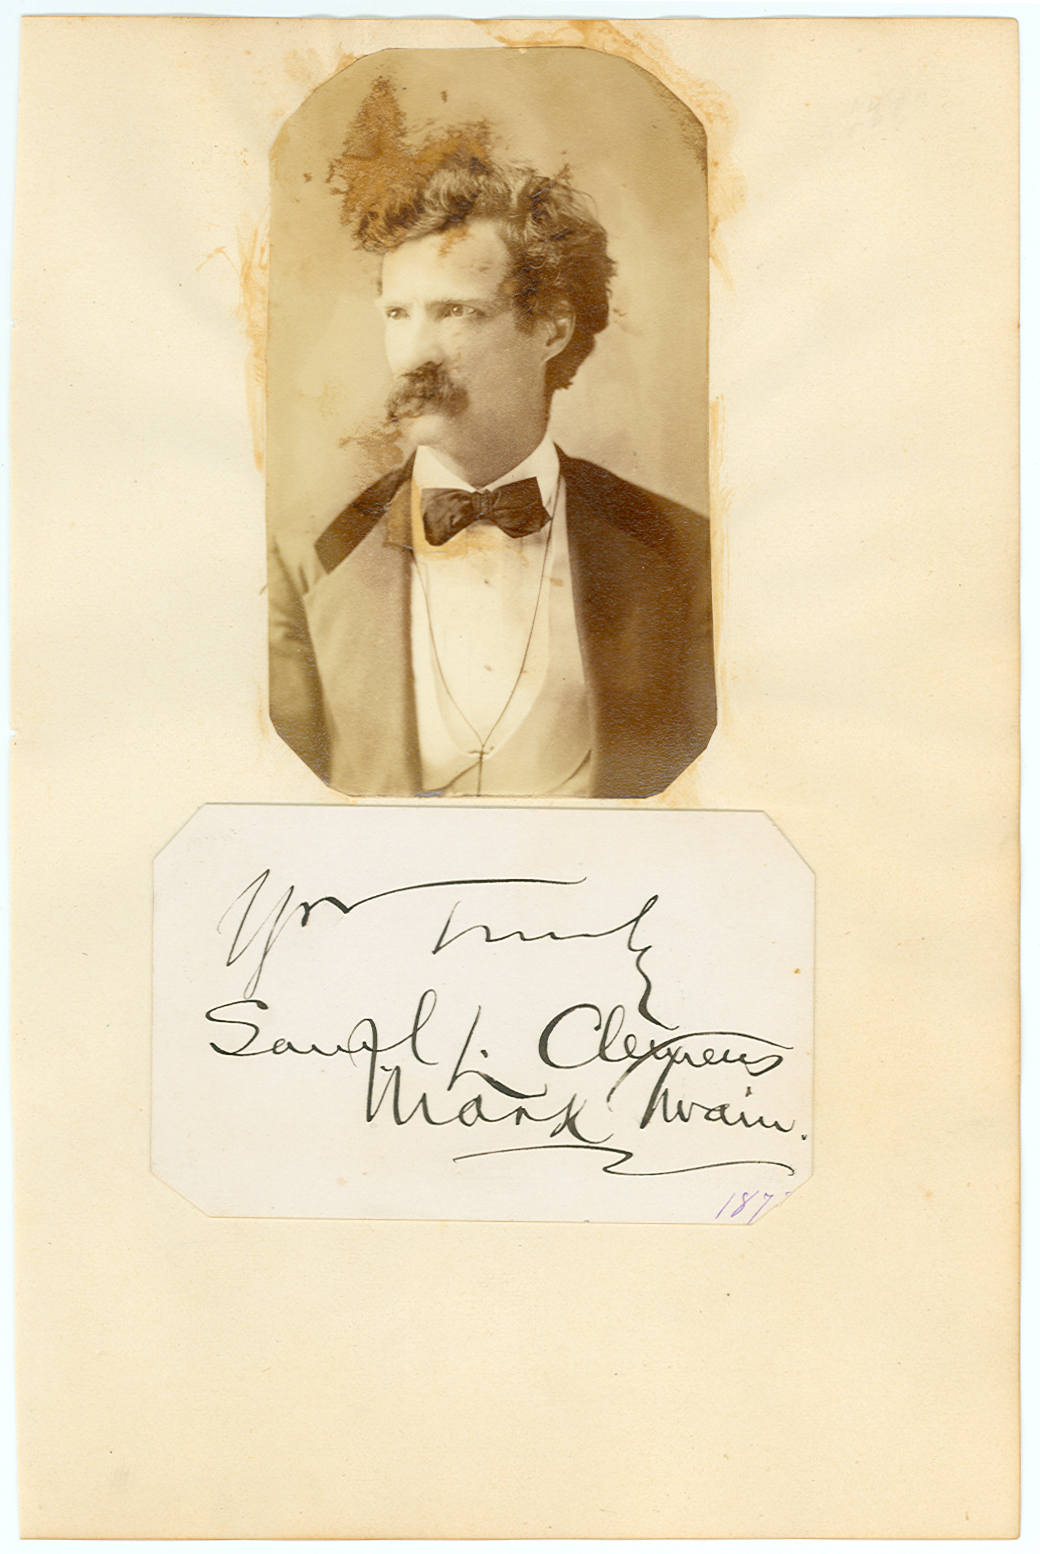 Yrs Truly
Saml L. Clemens
Mark Twain.
187